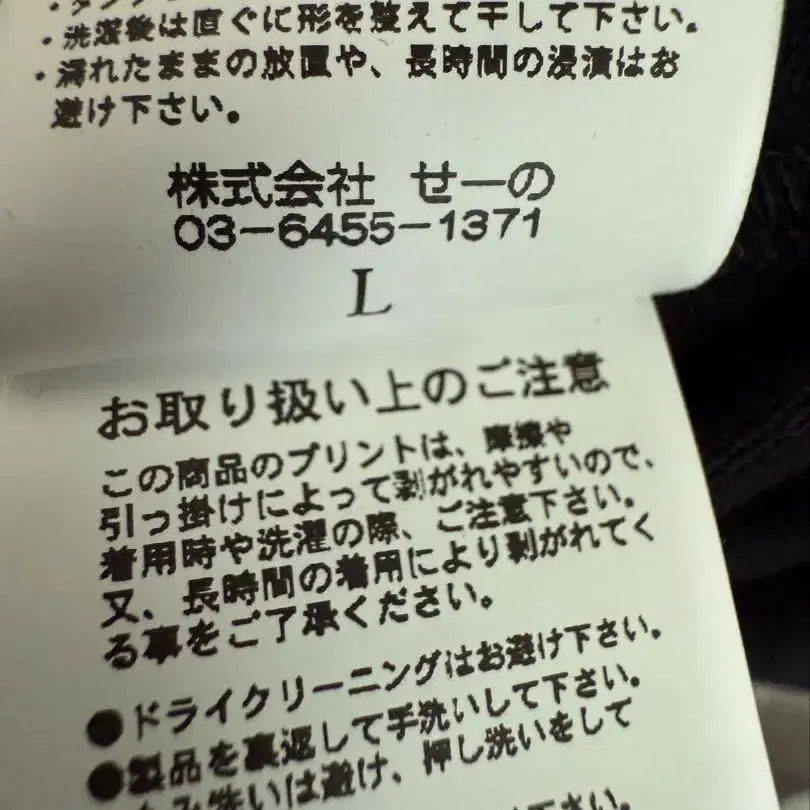 ・洗濯後は直ぐに形を整えて干して下さい。
・濡れたままの放置や、長時間の浸漬はお
避け下さい。
株式会社 せーの
03-6455-1371
L
お取り扱い上のご注意
この商品のプリントは、摩擦や
引っ掛けによって剥がれやすいので、
着用時や洗濯の際、ご注意下さい。
又、長時間の着用により剥がれてく
る事をご了承ください。
●ドライクリーニングはお避け下さい。
●製品を裏返して手洗いして下さい。
み洗いは避け、押し洗いをして
さい。